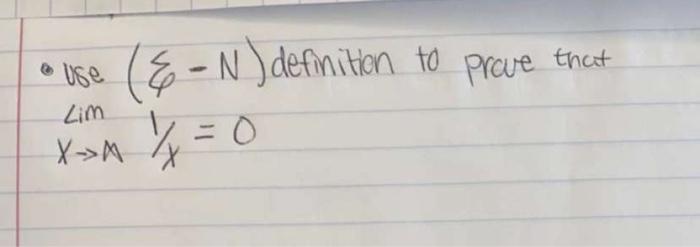 • use (ξ - N) definition to prove that
Lim
X→∞ 1/x = 0